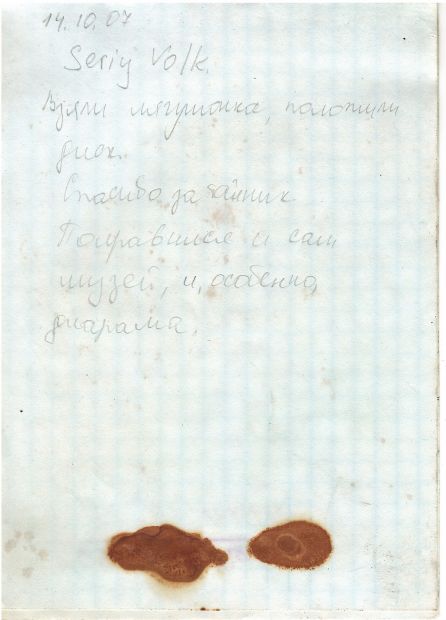 14.10.07
Seriy Volk.
Взяли лягушонка, положили
диск.
Спасибо за тайник
Понравился и сам
музей, и, особенно,
диарама.